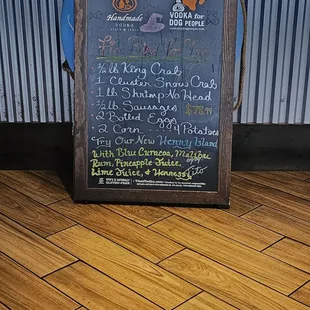 Handmade
VODKA
VODKA for
DOG PEOPLE
½ lb King Crab
1 Cluster Snow Crab
1 lb Shrimp No Head
½ lb Sausages $78.99
2 Boiled Eggs
2 Corn 4 Potatoes
Try Our New Henny Island
With Blue Curacoa, Malibu
Rum, Pineapple Juice,
Lime Juice, & Hennessy